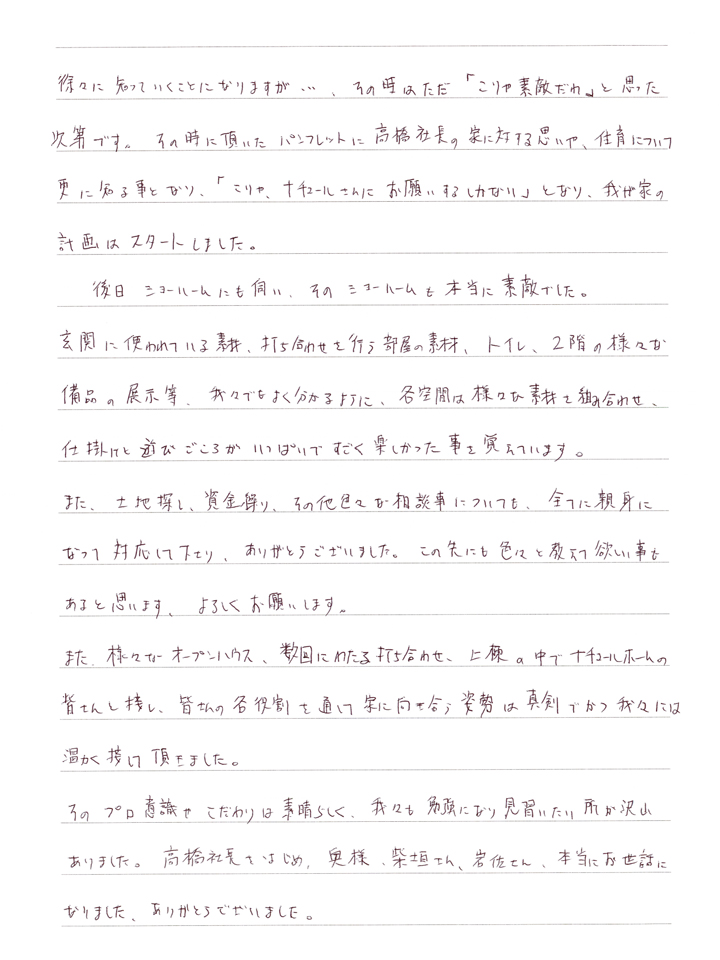 徐々に知っていくことになりますが…、その時はただ「こりゃ素敵だわ」と思った
次第です。その時に頂いたパンフレットに高橋社長の家に対する思いや、住育について
更に知る事となり、「こりゃ、ナチュールさんにお願いするしかない」となり、我が家の
計画はスタートしました。
後日ショールームにも伺い、そのショールームも本当に素敵でした。
玄関に使われている素材、打ち合わせを行う部屋の素材、トイレ、2階の様々な
備品の展示等、我々でもよく分かるように、各空間は様々な素材を組み合わせ、
仕掛けと遊びごころがいっぱいですごく楽しかった事を覚えています。
また、土地探し、資金繰り、その他色々な相談事についても、全てに親身に
なって対応して下さり、ありがとうございました。この先にも色々と教えて欲しい事も
あると思います、よろしくお願いします。
また、様々なオープンハウス、数回にわたる打ち合わせ、上棟の中でナチュールホームの
皆さんと接し、皆さんの各役割を通して家に向き合う姿勢は真剣でかつ我々には
温かく接して頂きました。
そのプロ意識やこだわりは素晴らしく、我々も勉強になり見習いたい所が沢山
ありました。高橋社長をはじめ、奥様、柴垣さん、岩佐さん、本当にお世話に
なりました、ありがとうございました。